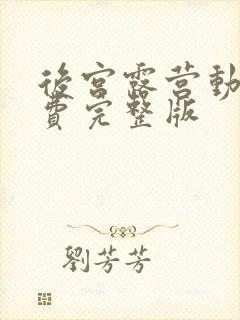 後宮露营動
費完整版
劉芳芳